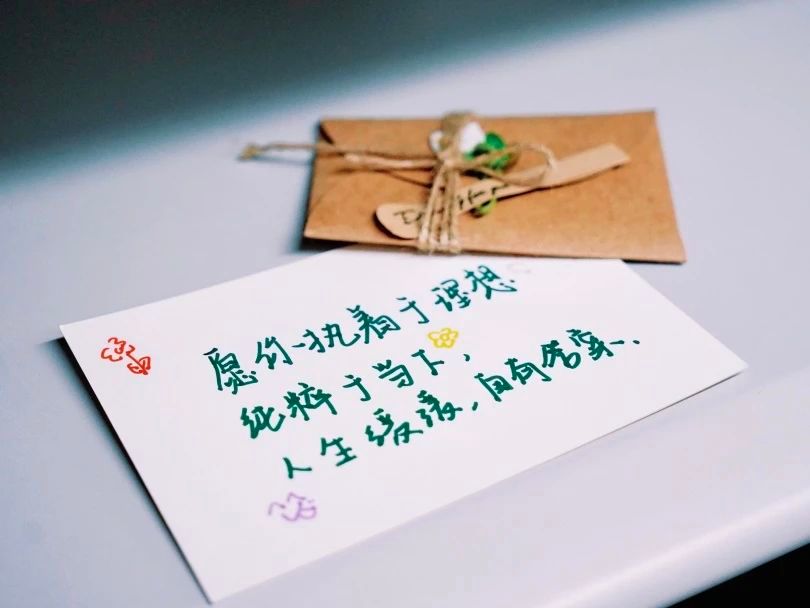 愿你执着于理想
纯粹于当下,
人生缓缓,自有答案.